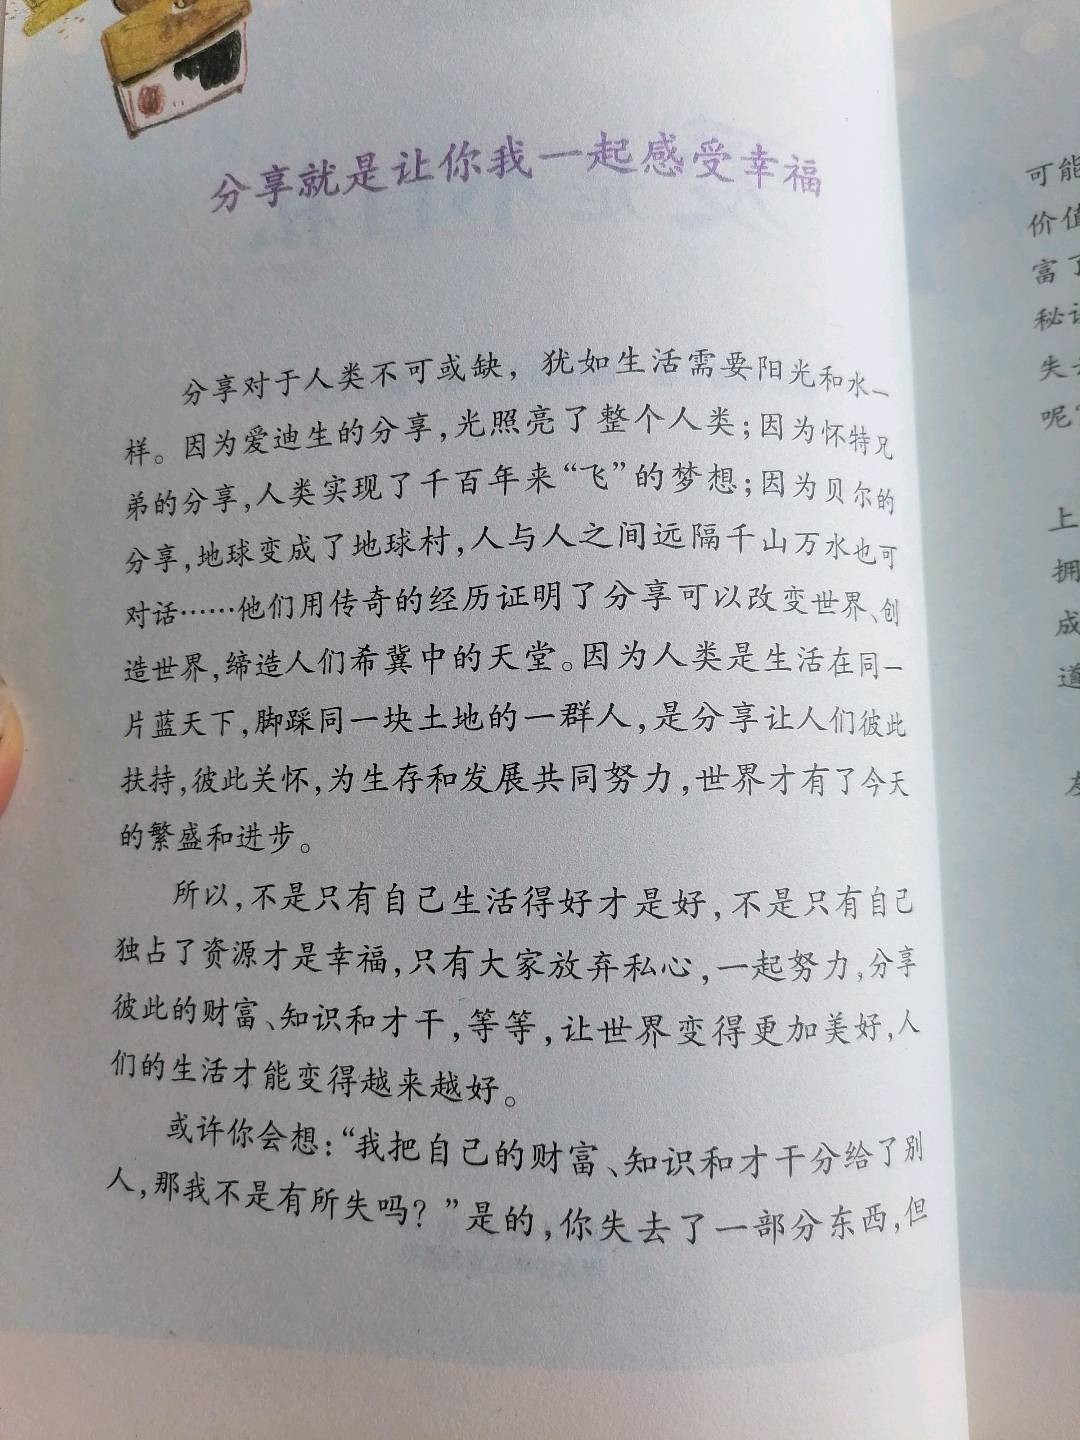 分享就是让你我一起感受幸福
分享对于人类不可或缺，犹如生活需要阳光和水一
样。因为爱迪生的分享，光照亮了整个人类；因为怀特兄
弟的分享，人类实现了千百年来“飞”的梦想；因为贝尔的
分享，地球变成了地球村，人与人之间远隔千山万水也可
对话……他们用传奇的经历证明了分享可以改变世界、创
造世界，缔造人们希冀中的天堂。因为人类是生活在同一
片蓝天下，脚踩同一块土地的一群人，是分享让人们彼此
扶持，彼此关怀，为生存和发展共同努力，世界才有了今天
的繁盛和进步。
所以，不是只有自己生活得好才是好，不是只有自己
独占了资源才是幸福，只有大家放弃私心，一起努力，分享
彼此的财富、知识和才干，等等，让世界变得更加美好，人
们的生活才能变得越来越好。
或许你会想：“我把自己的财富、知识和才干分给了别
人，那我不是有所失吗？”是的，你失去了一部分东西，但
可能
价值
富了
秘
失
呢
上
拥
成